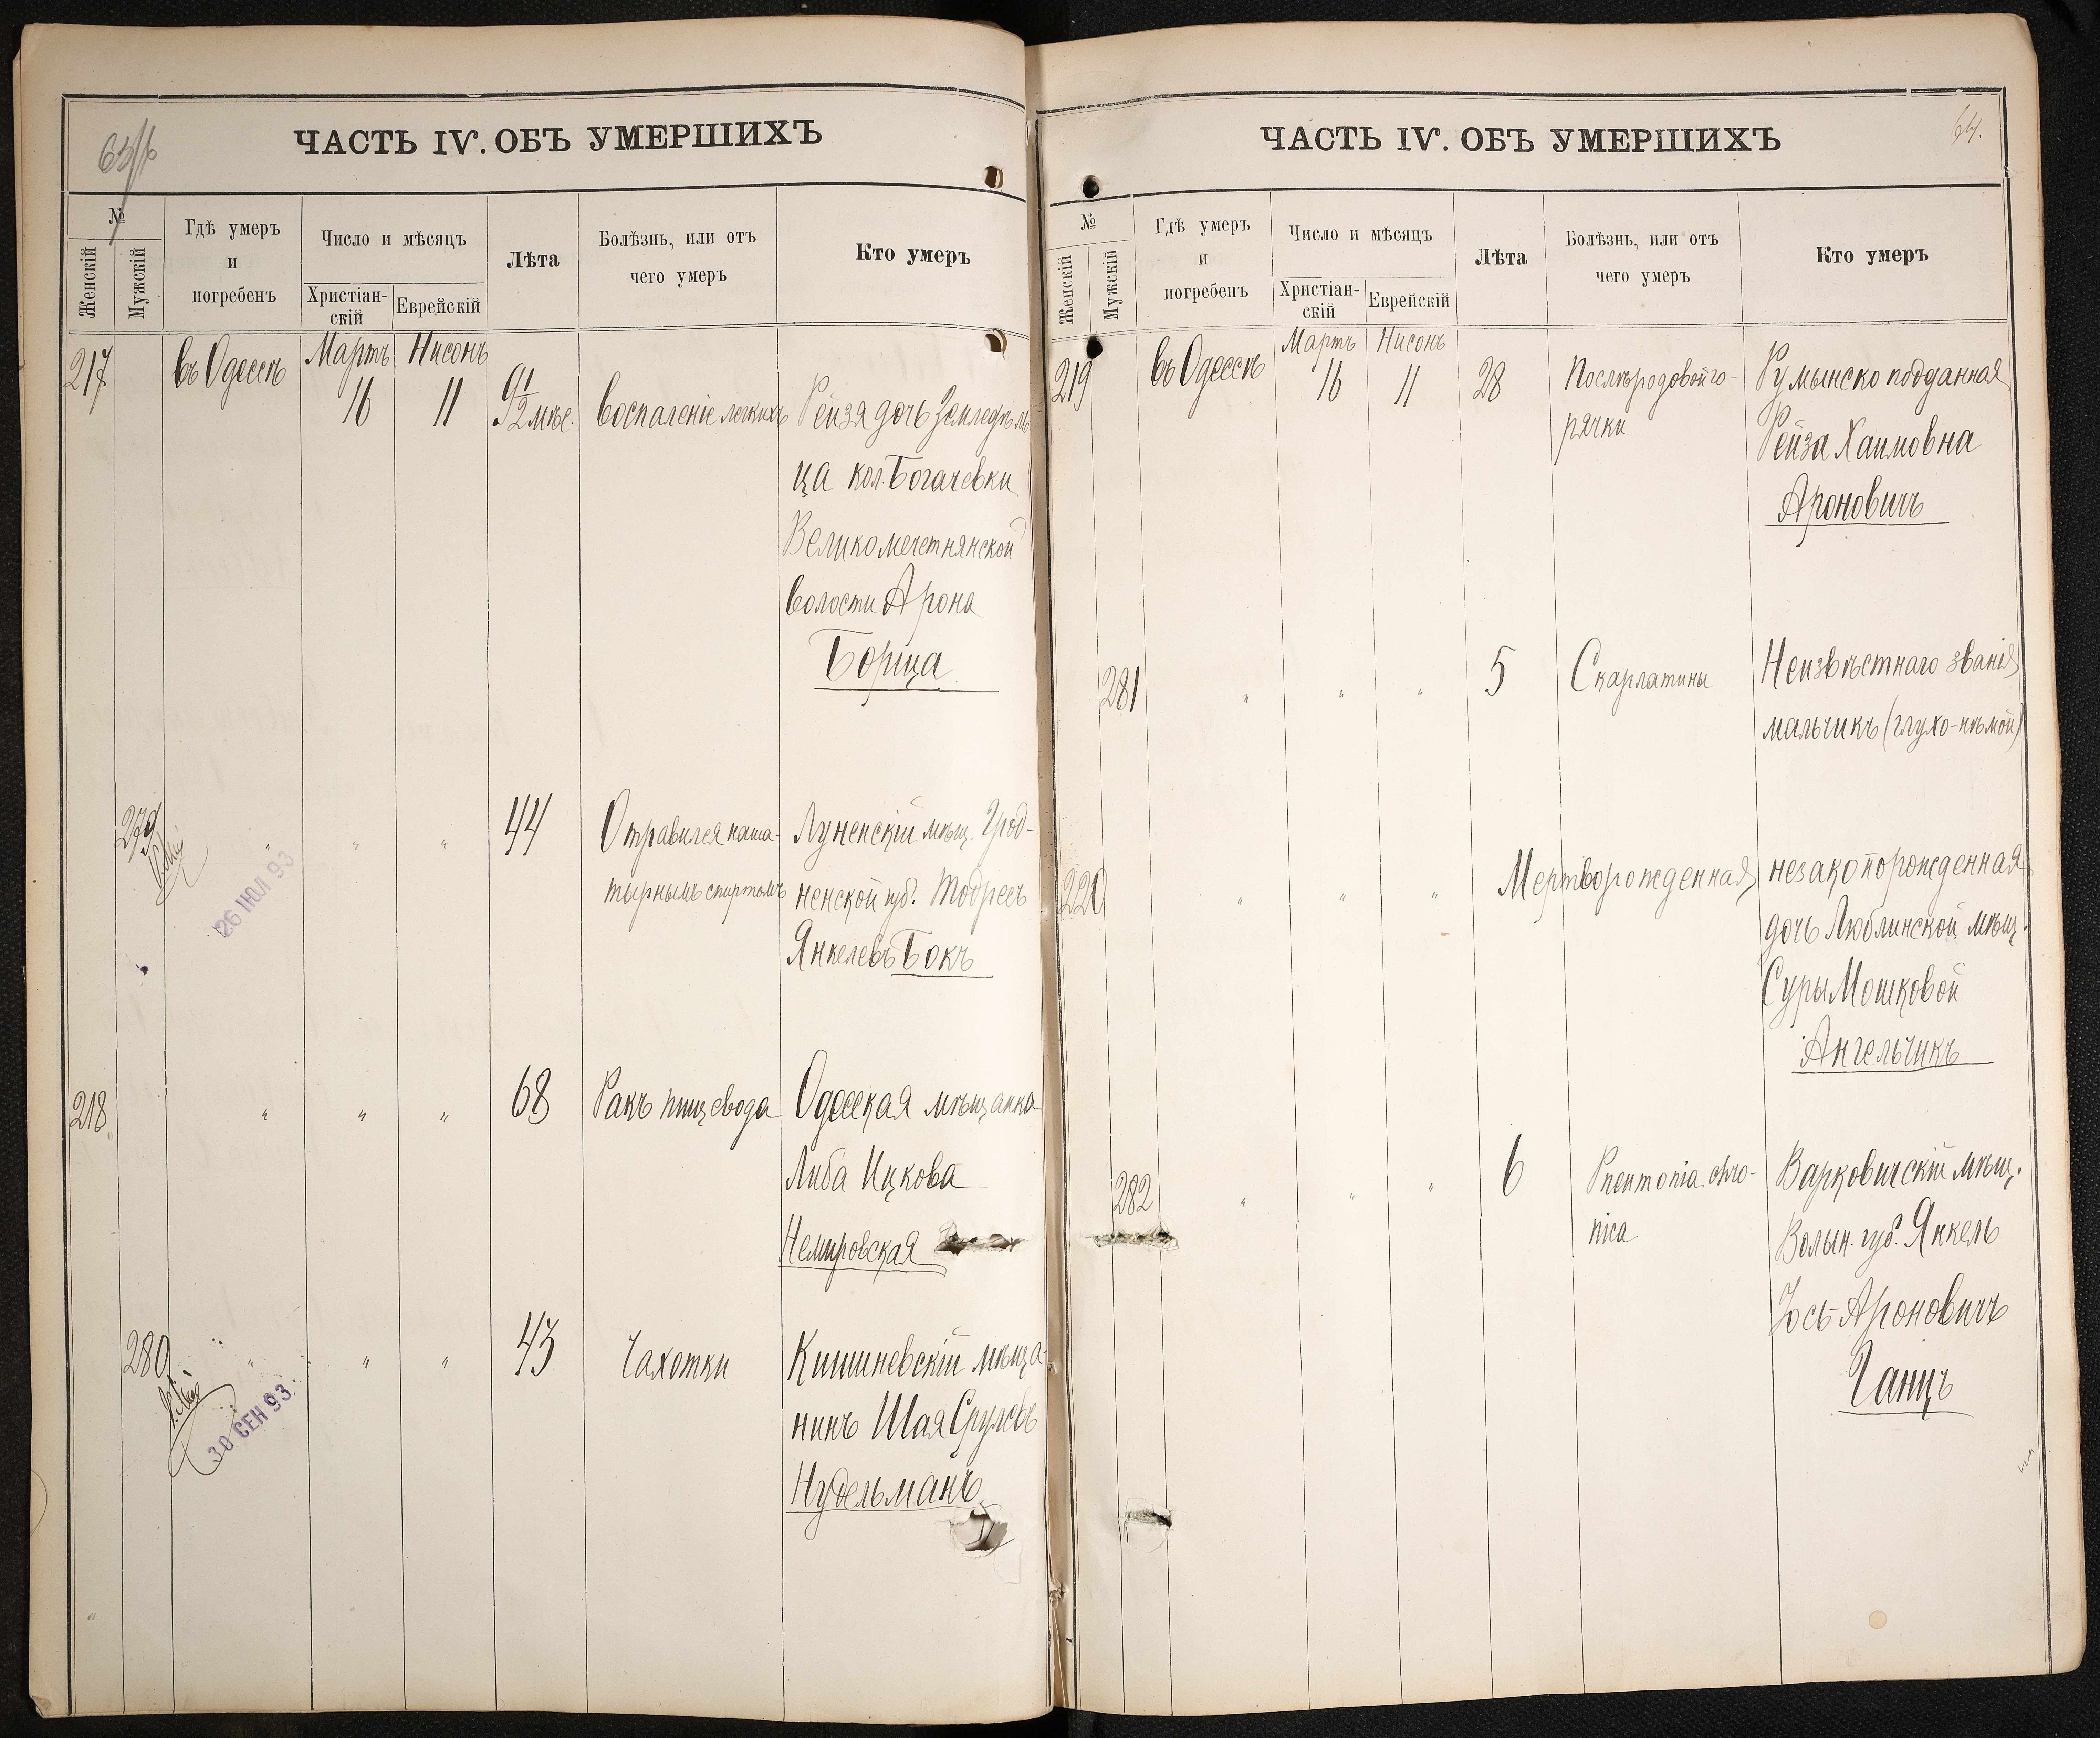 ЧАСТЬ IV. ОБЪ УМЕРШИХЪ
№
Женскій
Мужскій
Гдѣ умеръ
и
погребенъ
Число и мѣсяцъ
Христіан-
скій
Еврейскій
Лѣта
Болѣзнь, или отъ
чего умеръ
Кто умеръ
217
въ Одессѣ
Мартъ
16
Нисонъ
11
9 1/2 мѣс.
Воспаленіе легкихъ
Рейза дочь земледѣль
ца кол. Богачевки
Великомечетнянской
волости Арона
Борща
279
26 ІЮЛ 93
" " "
44
Отравился наша-
тырнымъ спиртомъ
Луненскій мѣщ. Грод-
ненской губ. Тодресъ
Янкелевъ Бокъ
218
" " "
68
Ракъ пищевода
Одесская мѣщанка
Либа Ицкова
Немировская
280
30 СЕН 93
" " "
43
Чахотки
Кишиневскій мѣща-
нинъ Шая Срулевъ
Нудельманъ
ЧАСТЬ IV. ОБЪ УМЕРШИХЪ
64.
№
Женскій
Мужскій
Гдѣ умеръ
и
погребенъ
Число и мѣсяцъ
Христіан-
скій
Еврейскій
Лѣта
Болѣзнь, или отъ
чего умеръ
Кто умеръ
219
въ Одессѣ
Мартъ
16
Нисонъ
11
28
Послѣродовой го-
рячки
Румынско подданная
Рейза Хаимовна
Ароновичъ
281
" " "
5
Скарлатины
Неизвѣстнаго званія
мальчикъ (глухо-нѣмой)
220
" " "
Мертворожденная
незаконорожденная
дочь Люблинской мѣщ.
Суры Мошковой
Ангельчикъ
282
" " "
6
Pneumonia chro-
nica
Варковичскій мѣщ.
Волын. губ. Янкель
Іось-Ароновичъ
Ганцъ